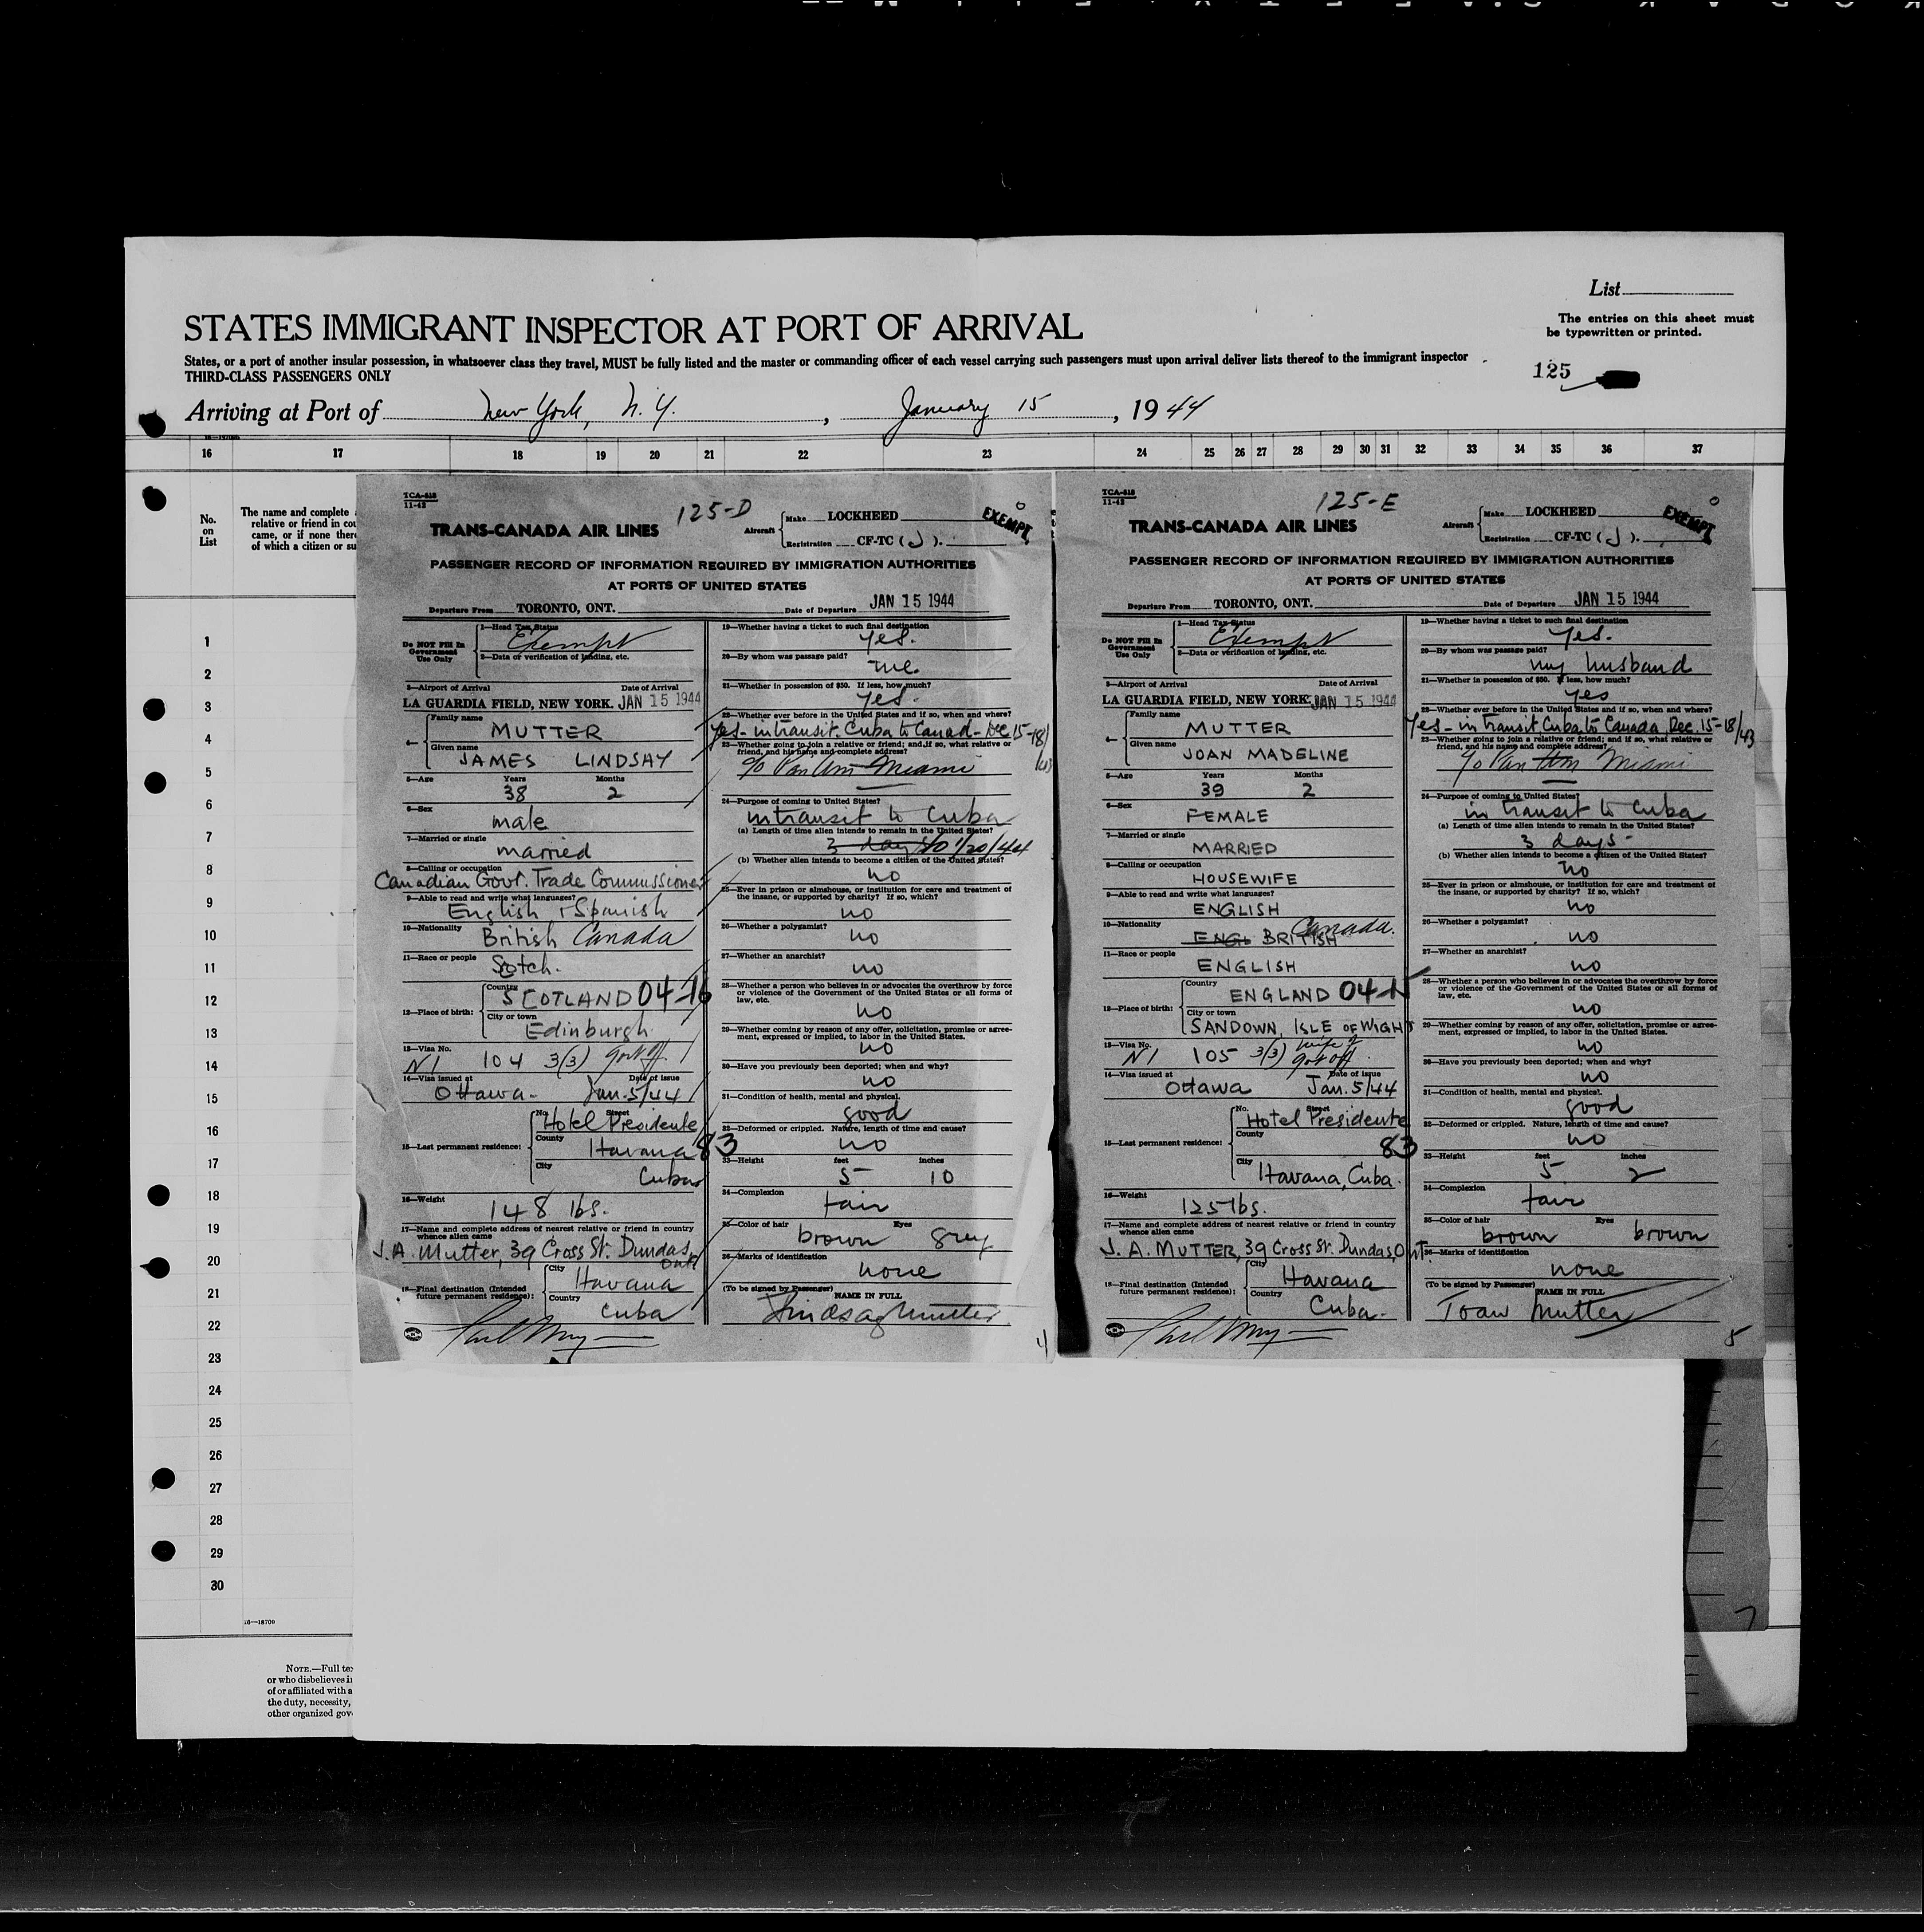 List
STATES IMMIGRANT INSPECTOR AT PORT OF ARRIVAL
The entries on this sheet must
be typewritten or printed.
States, or a port of another insular possession, in whatsoever class they travel, MUST be fully listed and the master or commanding officer of each vessel carrying such passengers must upon arrival deliver lists thereof to the immigrant inspector
THIRD-CLASS PASSENGERS ONLY
125
Arriving at Port of New York, N.Y., January 15, 1944
16 17 18 19 20 21 22 23 24 25 26 27 28 29 30 31 32 33 34 35 36 37
No.
on
List
The name and complete
relative or friend in cou
came, or if none there
of which a citizen or su
1
2
3
4
5
6
7
8
9
10
11
12
13
14
15
16
17
18
19
20
21
22
23
24
25
26
27
28
29
30
16—18709
NOTE.—Full te
or who disbelieves i
of or affiliated with a
the duty, necessity,
other organized gov
TCA-518
11-42
125-D
TRANS-CANADA AIR LINES
Aircraft
Make LOCKHEED
Registration CF-TC (J).
EXEMPT
PASSENGER RECORD OF INFORMATION REQUIRED BY IMMIGRATION AUTHORITIES
AT PORTS OF UNITED STATES
Departure From TORONTO, ONT. Date of Departure JAN 15 1944
Do NOT Fill In
Government
Use Only
1—Head Tax Status
Exempt
2—Data or verification of landing, etc.
3—Airport of Arrival Date of Arrival
LA GUARDIA FIELD, NEW YORK. JAN 15 1944
4—
Family name
MUTTER
Given name
JAMES LINDSAY
5—Age Years Months
38 2
6—Sex
male
7—Married or single
married
8—Calling or occupation
Canadian Govt. Trade Commissioner
9—Able to read and write what languages?
English + Spanish
10—Nationality
British Canada
11—Race or people
Scotch.
12—Place of birth:
Country
SCOTLAND 04-16
City or town
Edinburgh
13—Visa No.
N1 104 3(3) Govt Off.
14—Visa issued at Date of issue
Ottawa. Jan. 5/44
15—Last permanent residence:
No. Street
Hotel Presidente
County
Havana 83
City
Cuba
16—Weight
148 lbs.
17—Name and complete address of nearest relative or friend in country
whence alien came
J.A. Mutter, 39 Cross St. Dundas,
Ont
18—Final destination (Intended
future permanent residence):
City
Havana
Country
Cuba
19—Whether having a ticket to such final destination
yes.
20—By whom was passage paid?
me.
21—Whether in possession of $50. If less, how much?
yes.
22—Whether ever before in the United States and if so, when and where?
yes - in transit Cuba to Canad - Dec 15-18/43
23—Whether going to join a relative or friend; and if so, what relative or
friend, and his name and complete address?
c/o Pan Am Miami
24—Purpose of coming to United States?
in transit to Cuba
(a) Length of time alien intends to remain in the United States?
3 days to 1/20/44
(b) Whether alien intends to become a citizen of the United States?
no
25—Ever in prison or almshouse, or institution for care and treatment of
the insane, or supported by charity? If so, which?
no
26—Whether a polygamist?
no
27—Whether an anarchist?
no
28—Whether a person who believes in or advocates the overthrow by force
or violence of the Government of the United States or all forms of
law, etc.
no
29—Whether coming by reason of any offer, solicitation, promise or agree-
ment, expressed or implied, to labor in the United States.
no
30—Have you previously been deported; when and why?
no
31—Condition of health, mental and physical.
good
32—Deformed or crippled. Nature, length of time and cause?
no
33—Height feet inches
5 10
34—Complexion
fair
35—Color of hair Eyes
brown grey
36—Marks of identification
none
(To be signed by Passenger) NAME IN FULL
Lindsay Mutter
4
TCA-518
11-42
125-E
TRANS-CANADA AIR LINES
Aircraft
Make LOCKHEED
Registration CF-TC (J).
EXEMPT
PASSENGER RECORD OF INFORMATION REQUIRED BY IMMIGRATION AUTHORITIES
AT PORTS OF UNITED STATES
Departure From TORONTO, ONT. Date of Departure JAN 15 1944
Do NOT Fill In
Government
Use Only
1—Head Tax Status
Exempt
2—Data or verification of landing, etc.
3—Airport of Arrival Date of Arrival
LA GUARDIA FIELD, NEW YORK. JAN 15 1944
4—
Family name
MUTTER
Given name
JOAN MADELINE
5—Age Years Months
39 2
6—Sex
FEMALE
7—Married or single
MARRIED
8—Calling or occupation
HOUSEWIFE
9—Able to read and write what languages?
ENGLISH
10—Nationality
ENGL BRITISH Canada.
11—Race or people
ENGLISH
12—Place of birth:
Country
ENGLAND 04-15
City or town
SANDOWN, ISLE OF WIGHT
13—Visa No.
N1 105 3(3) wife of
Govt off
14—Visa issued at Date of issue
Ottawa Jan. 5/44
15—Last permanent residence:
No. Street
Hotel Presidente
County
83
City
Havana, Cuba.
16—Weight
125 lbs.
17—Name and complete address of nearest relative or friend in country
whence alien came
J. A. MUTTER, 39 Cross St. Dundas, ONT.
18—Final destination (Intended
future permanent residence):
City
Havana
Country
Cuba.
19—Whether having a ticket to such final destination
Yes.
20—By whom was passage paid?
my husband
21—Whether in possession of $50. If less, how much?
yes
22—Whether ever before in the United States and if so, when and where?
Yes - in transit Cuba to Canada Dec. 15-18/43
23—Whether going to join a relative or friend; and if so, what relative or
friend, and his name and complete address?
c/o Pan Am Miami
24—Purpose of coming to United States?
in transit to Cuba
(a) Length of time alien intends to remain in the United States?
3 days
(b) Whether alien intends to become a citizen of the United States?
no
25—Ever in prison or almshouse, or institution for care and treatment of
the insane, or supported by charity? If so, which?
no
26—Whether a polygamist?
no
27—Whether an anarchist?
no
28—Whether a person who believes in or advocates the overthrow by force
or violence of the Government of the United States or all forms of
law, etc.
no
29—Whether coming by reason of any offer, solicitation, promise or agree-
ment, expressed or implied, to labor in the United States.
no
30—Have you previously been deported; when and why?
no
31—Condition of health, mental and physical.
good
32—Deformed or crippled. Nature, length of time and cause?
no
33—Height feet inches
5 2
34—Complexion
fair
35—Color of hair Eyes
brown brown
36—Marks of identification
none
(To be signed by Passenger) NAME IN FULL
Joan Mutter
5
7